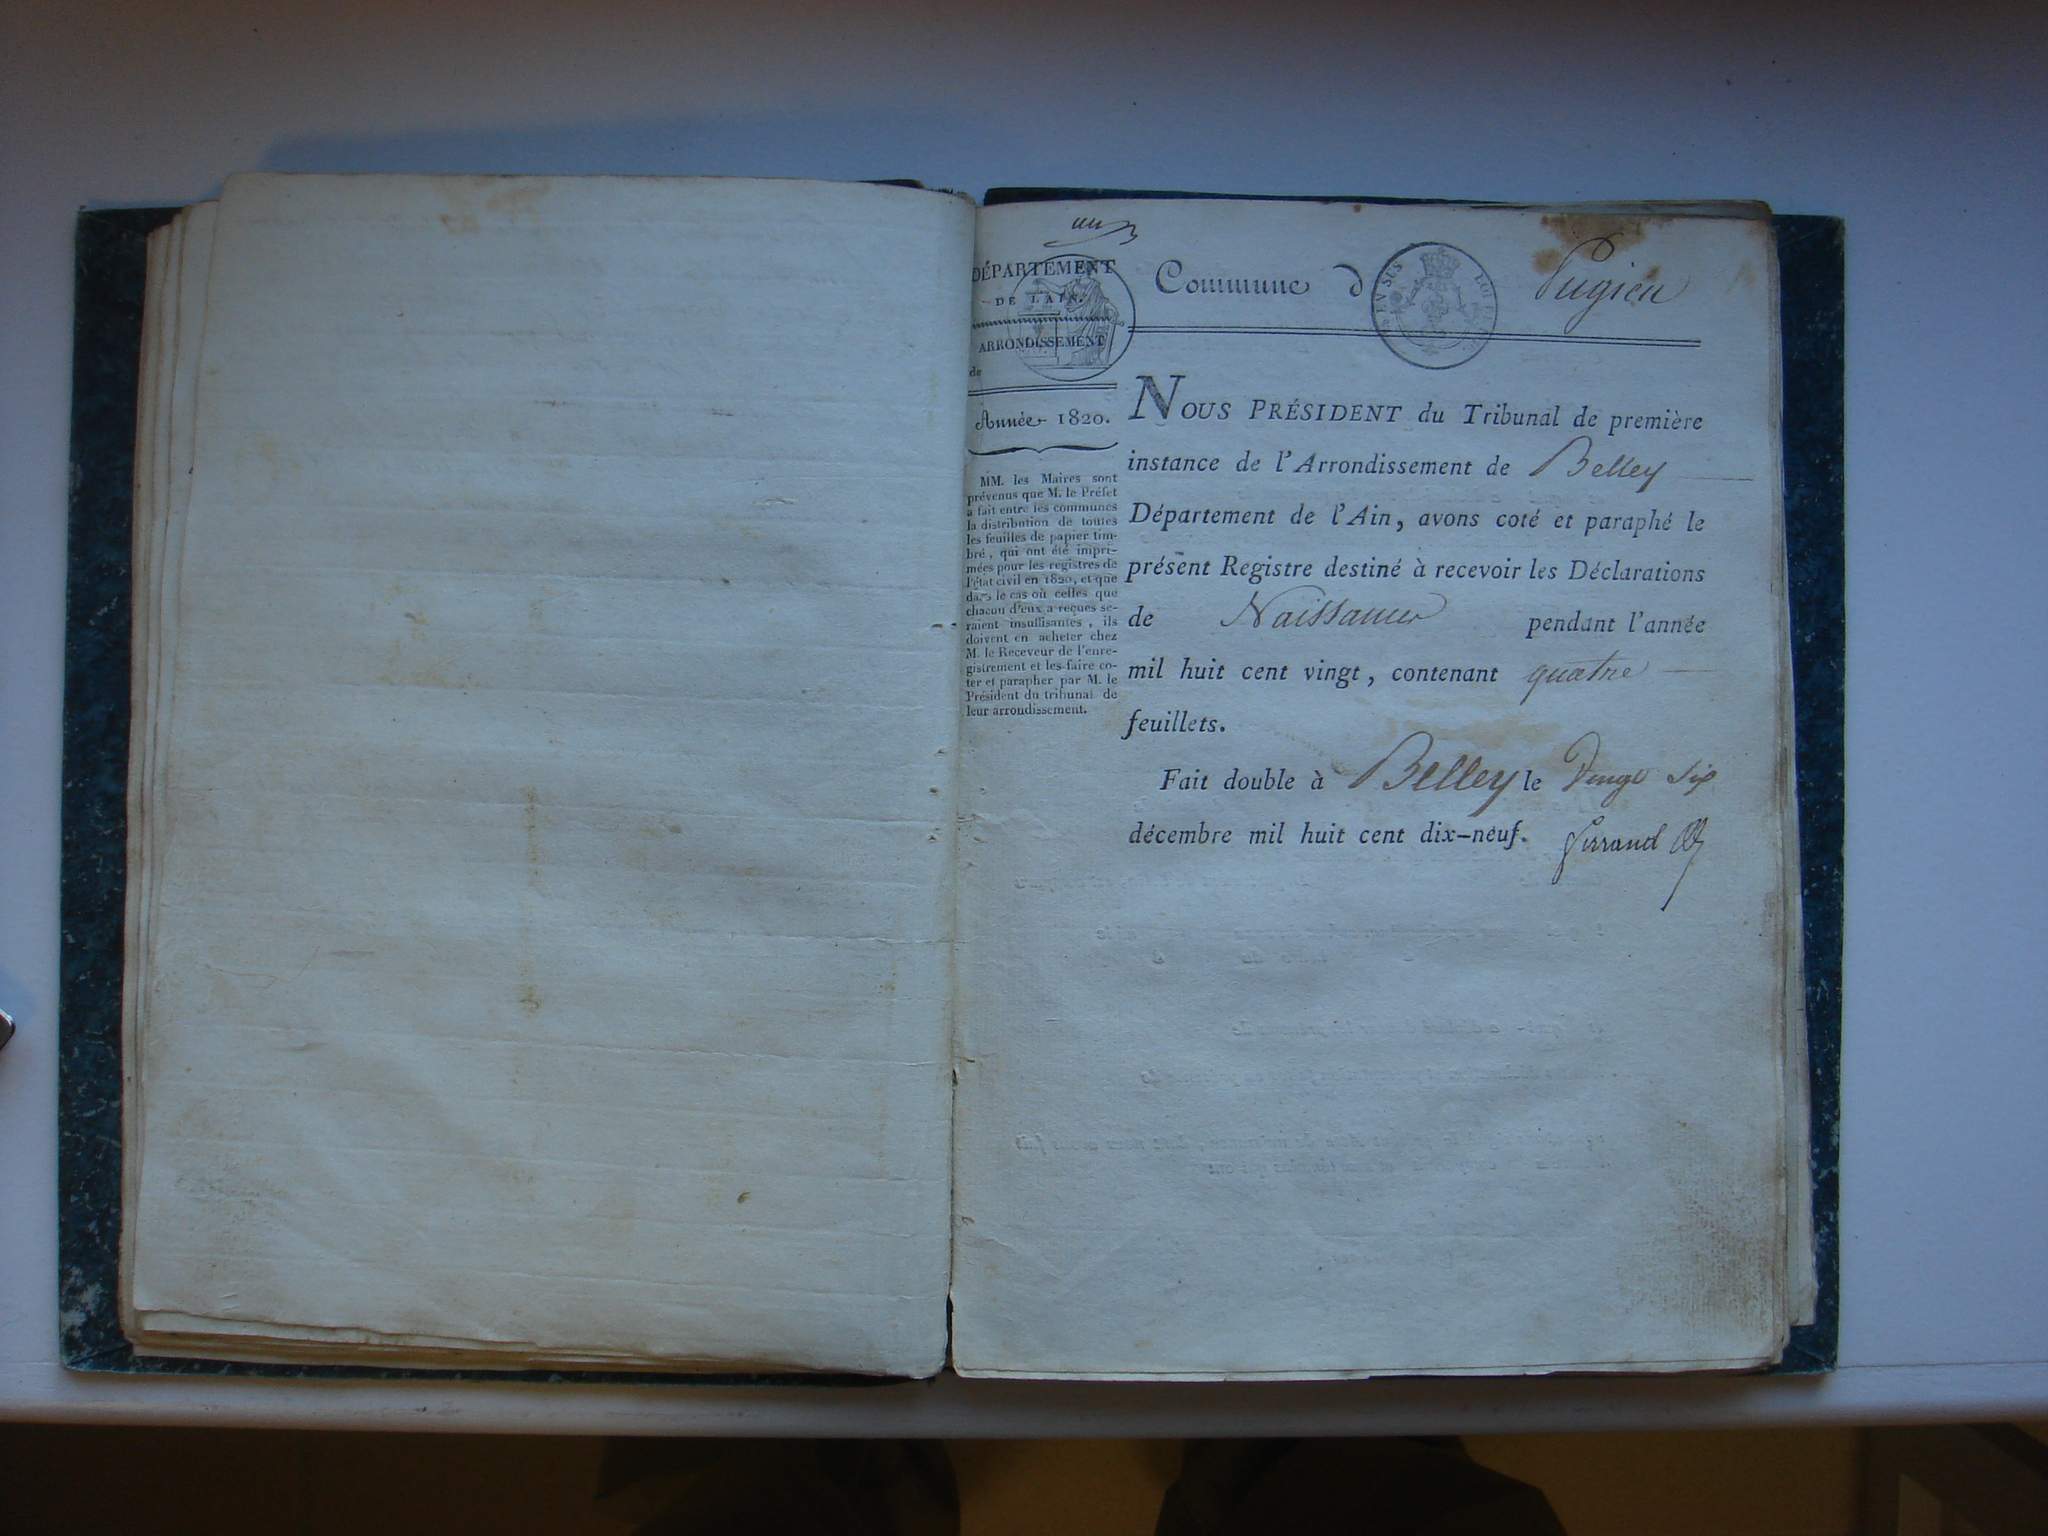 un
DÉPARTEMENT
DE L'AIN.
ARRONDISSEMENT
de
Année 1820.
MM. les Maires sont
prévenus que M. le Préfet
a fait entre les communes
la distribution de toutes
les feuilles de papier tim-
bré, qui ont été impri-
mées pour les registres de
l'état civil en 1820, et que
dans le cas où celles que
chacun d'eux a reçues se-
raient insuffisantes, ils
doivent en acheter chez
M. le Receveur de l'enre-
gistrement et les faire co-
ter et parapher par M. le
Président du tribunal de
leur arrondissement.
Commune d Pugieu
NOUS PRÉSIDENT du Tribunal de première
instance de l'Arrondissement de Belley
Département de l'Ain, avons coté et paraphé le
présent Registre destiné à recevoir les Déclarations
de Naissances pendant l'année
mil huit cent vingt, contenant quatre
feuillets.
Fait double à Belley le Vingt Six
décembre mil huit cent dix-neuf.